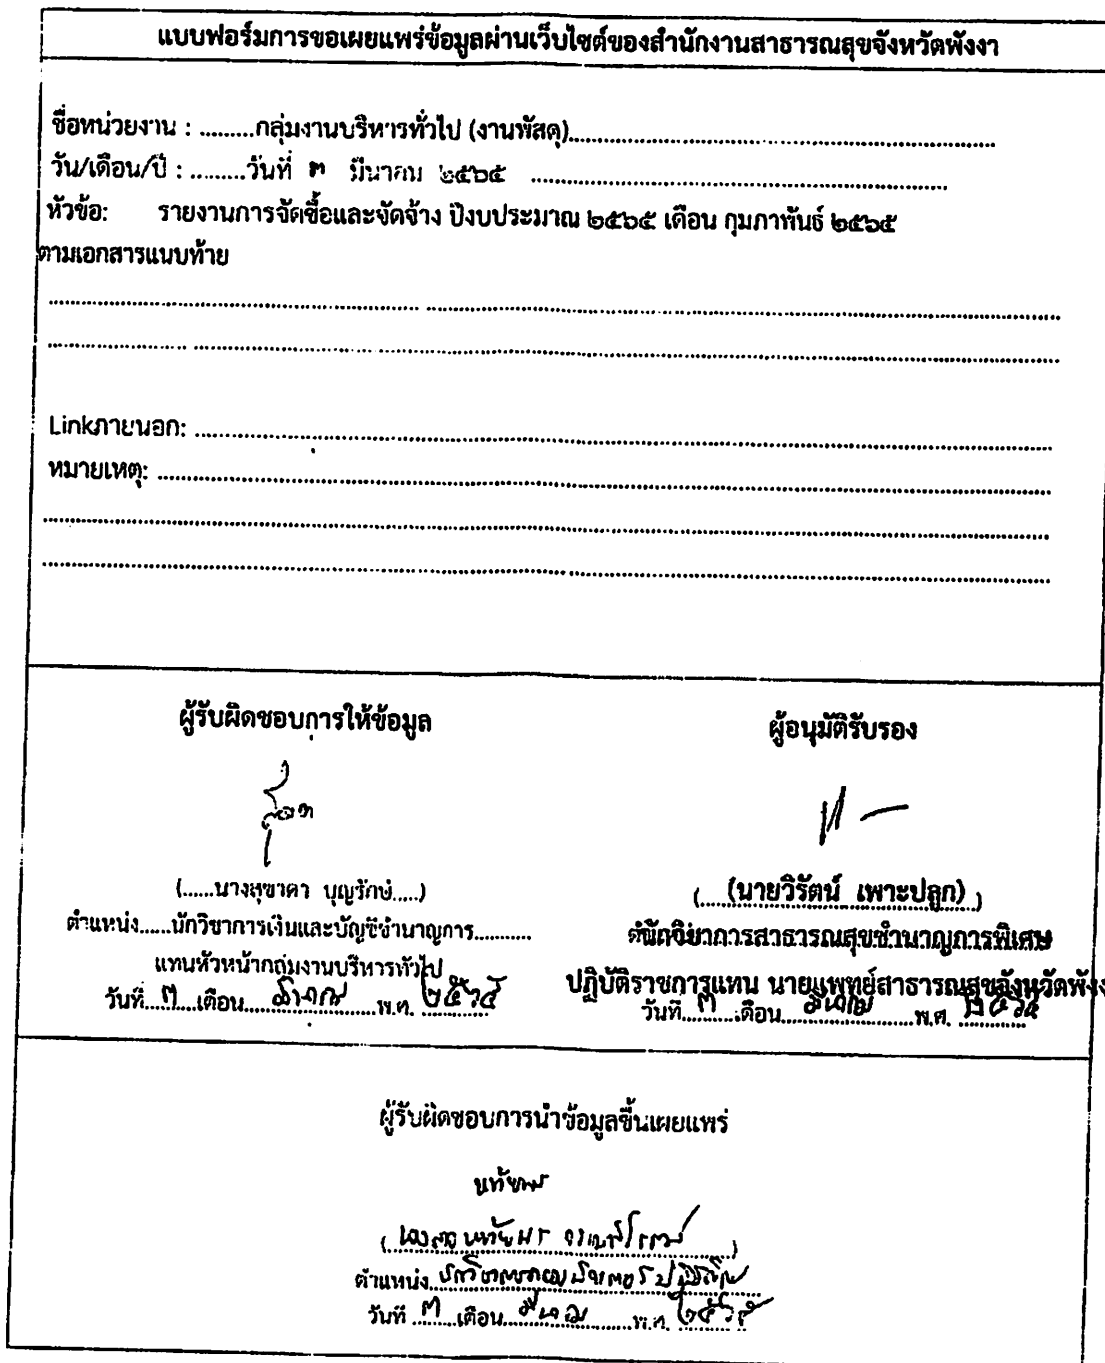 แบบฟอร์มการขอเผยแพร่ข้อมูลผ่านเว็บไซต์ของสำนักงานสาธารณสุขจังหวัดพังงา
ชื่อหน่วยงาน : .........กลุ่มงานบริหารทั่วไป (งานพัสดุ)..........
วัน/เดือน/ปี : .........วันที่ ๓ มีนาคม ๒๕๖๕ ..........
หัวข้อ: รายงานการจัดซื้อและจัดจ้าง ปีงบประมาณ ๒๕๖๕ เดือน กุมภาพันธ์ ๒๕๖๕
ตามเอกสารแนบท้าย
Linkภายนอก: ..........
หมายเหตุ: ..........
ผู้รับผิดชอบการให้ข้อมูล
(......นางสุชาดา บุญรักษ์.....)
ตำแหน่ง......นักวิชาการเงินและบัญชีชำนาญการ...........
แทนหัวหน้ากลุ่มงานบริหารทั่วไป
วันที่..๓..เดือน..มีนาคม..พ.ศ. ๒๕๖๕
ผู้อนุมัติรับรอง
(นายวิรัตน์ เพาะปลูก)
นักวิชาการสาธารณสุขชำนาญการพิเศษ
ปฏิบัติราชการแทน นายแพทย์สาธารณสุขจังหวัดพังง
วันที่..๓..เดือน..มีนาคม..พ.ศ. ๒๕๖๕
ผู้รับผิดชอบการนำข้อมูลขึ้นเผยแพร่
ตำแหน่ง นักวิชาการคอมพิวเตอร์ปฏิบัติการ
วันที่ ..๓.. เดือน..มีนาคม..พ.ศ. ๒๕๖๕